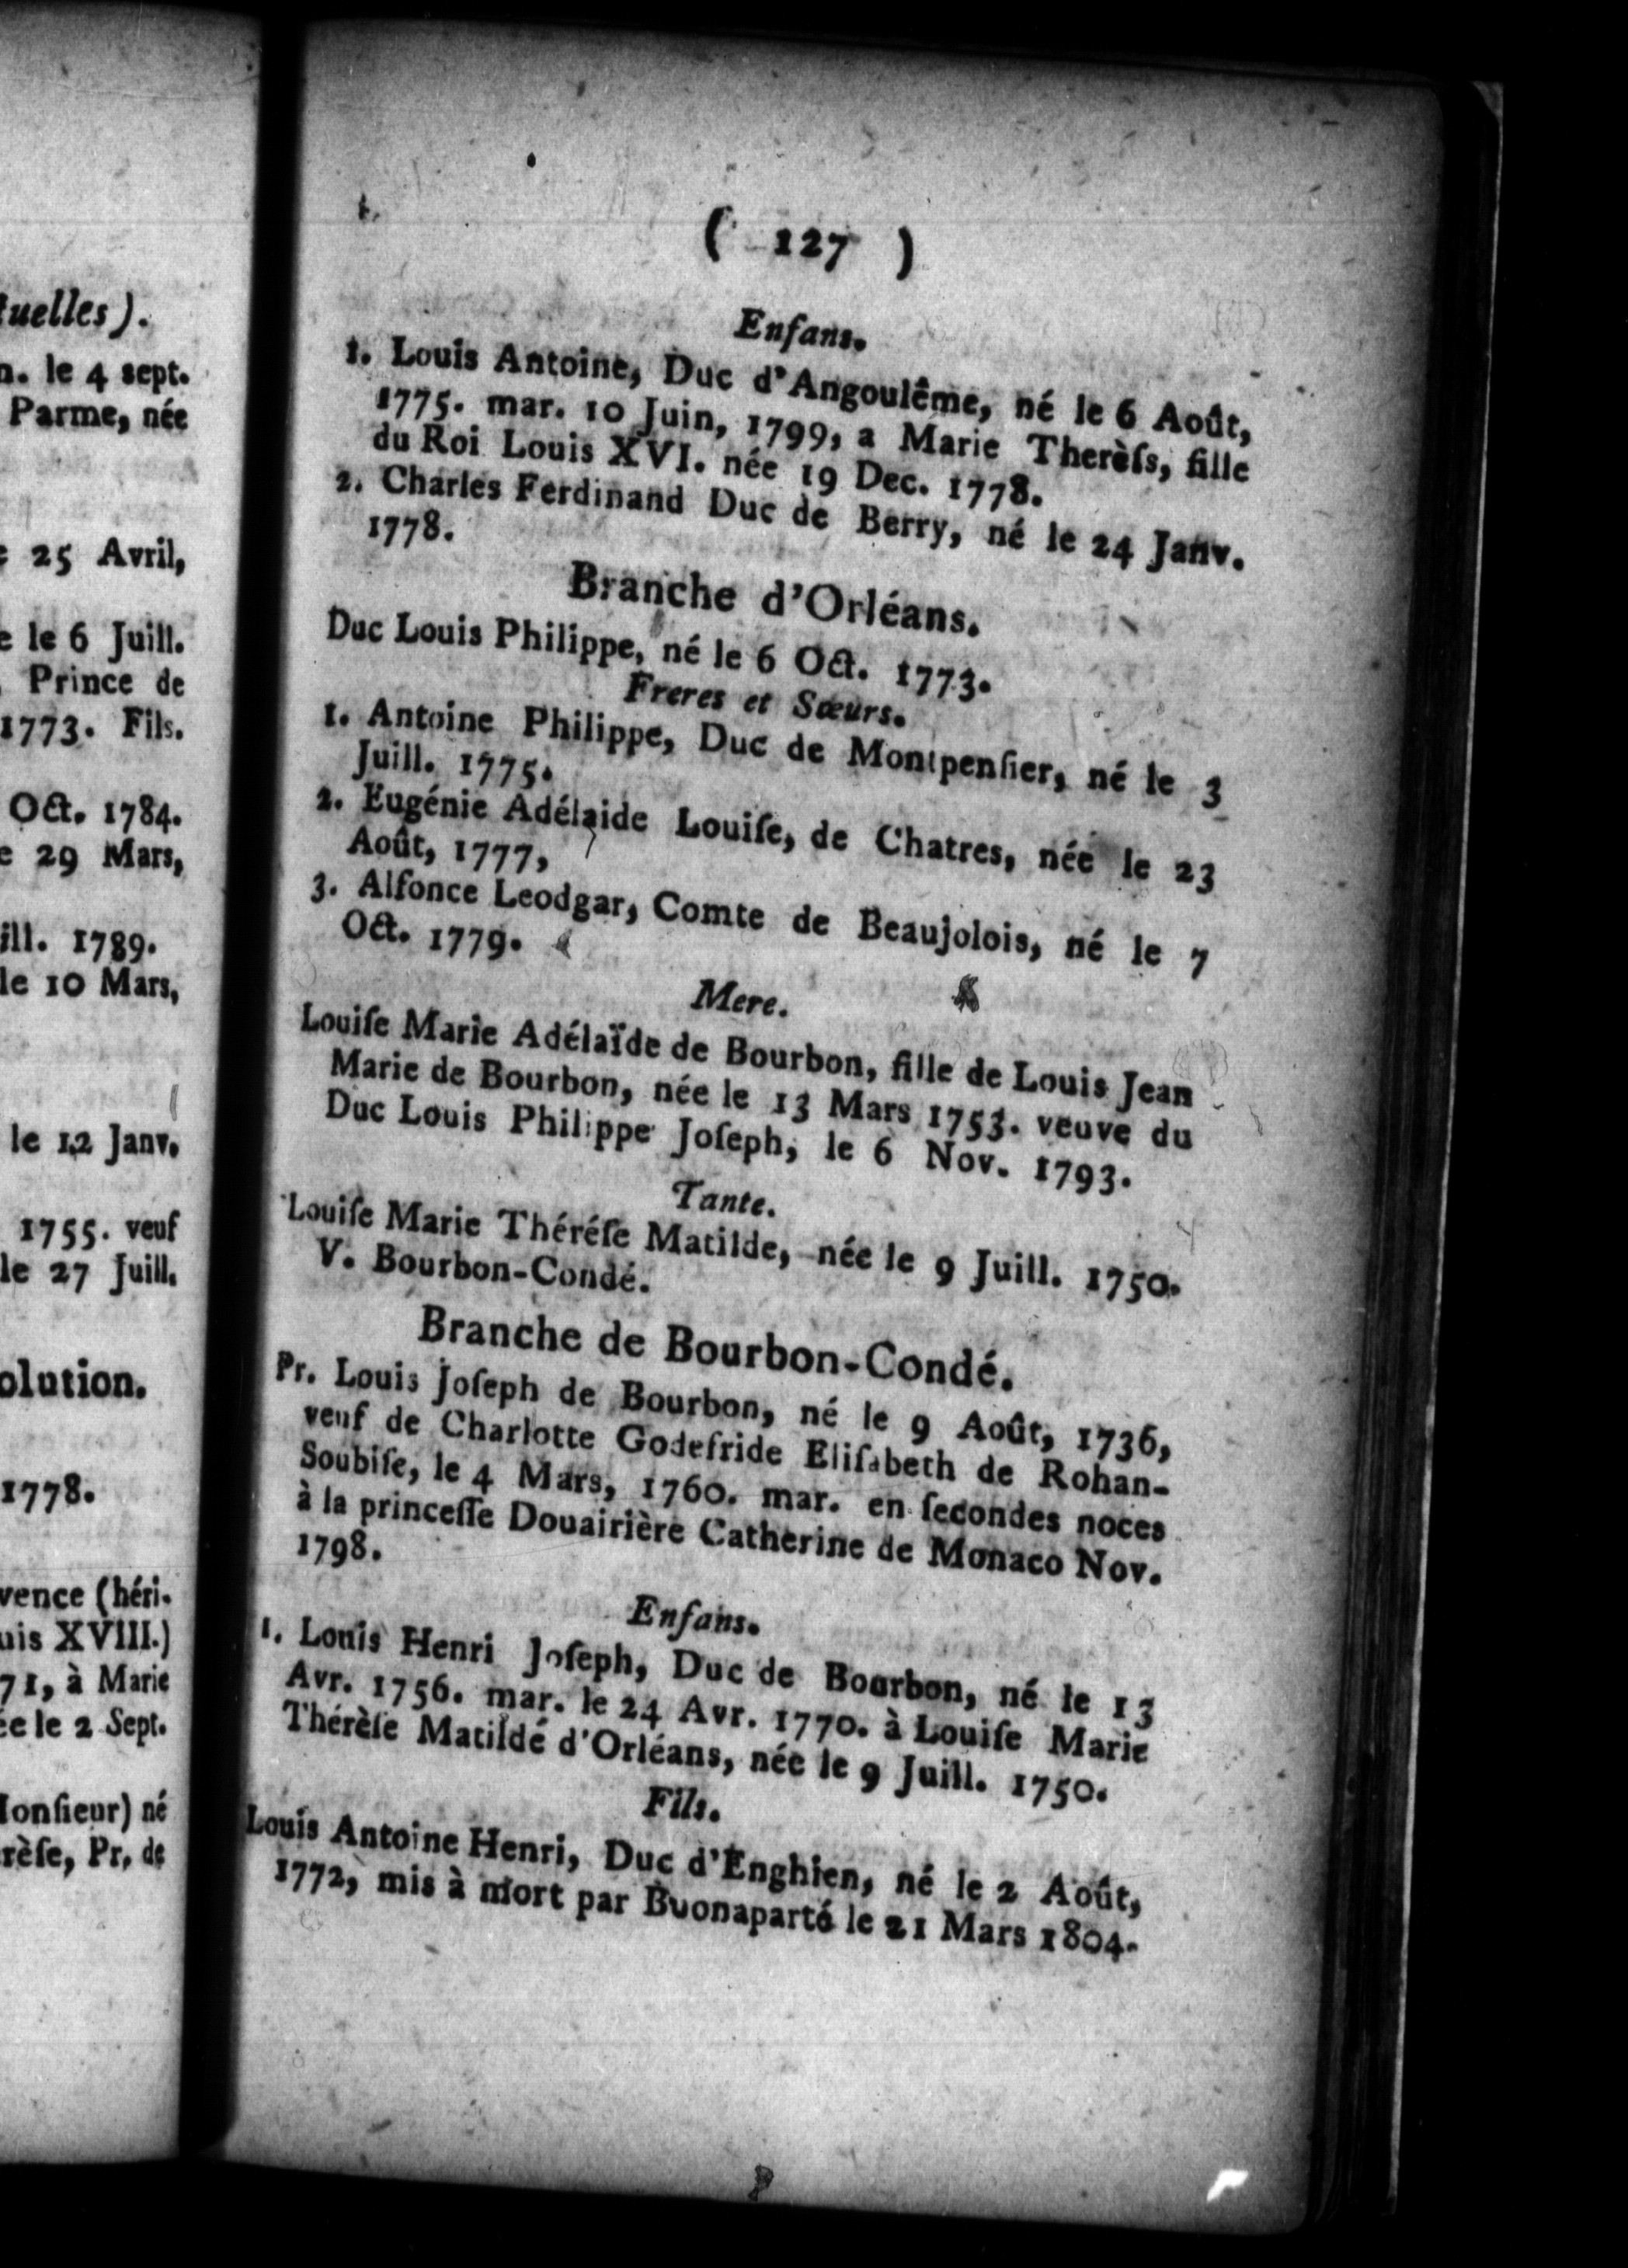 tuelles).
n. le 4 sept.
Parme, née
25 Avril,
e le 6 Juill.
Prince de
1773. Fils.
Oct. 1784.
e 29 Mars,
ill. 1789.
le 10 Mars,
le 12 Janv.
1755. veuf
le 27 Juill.
olution.
1778.
vence (héri-
uis XVIII.)
71, à Marie
ée le 2 Sept.
Ionſieur) né
rèſe, Pr. de
( 127 )
Enfans.
1. Louis Antoine, Duc d'Angoulême, né le 6 Août,
1775. mar. 10 Juin, 1799, a Marie Therèſs, fille
du Roi Louis XVI. née 19 Dec. 1778.
2. Charles Ferdinand Duc de Berry, né le 24 Janv.
1778.
Branche d'Orléans.
Duc Louis Philippe, né le 6 Oct. 1773.
Freres et Sœurs.
1. Antoine Philippe, Duc de Montpenſier, né le 3
Juill. 1775.
2. Eugénie Adélaide Louiſe, de Chatres, née le 23
Août, 1777,
3. Alfonce Leodgar, Comte de Beaujolois, né le 7
Oct. 1779.
Mere.
Louiſe Marie Adélaïde de Bourbon, fille de Louis Jean
Marie de Bourbon, née le 13 Mars 1753. veuve du
Duc Louis Philippe Joſeph, le 6 Nov. 1793.
Tante.
Louiſe Marie Théréſe Matilde, née le 9 Juill. 1750.
V. Bourbon-Condé.
Branche de Bourbon-Condé.
Pr. Louis Joſeph de Bourbon, né le 9 Août, 1736,
veuf de Charlotte Godefride Eliſabeth de Rohan-
Soubiſe, le 4 Mars, 1760. mar. en ſecondes noces
à la princeſſe Douairière Catherine de Monaco Nov.
1798.
Enfans.
1. Louis Henri Joſeph, Duc de Bourbon, né le 13
Avr. 1756. mar. le 24 Avr. 1770. à Louiſe Marie
Thérèſe Matildé d'Orléans, née le 9 Juill. 1750.
Fils.
Louis Antoine Henri, Duc d'Enghien, né le 2 Août,
1772, mis à mort par Buonaparté le 21 Mars 1804.